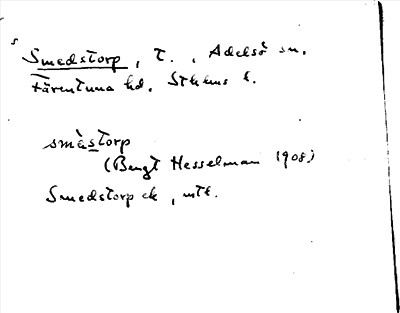 s
Smedstorp, t., Adelsö sn.
Färentuna hd. Sthlms l.
smèstorp
(Bengt Hesselman 1908)
Smedstorp ek, mtl.